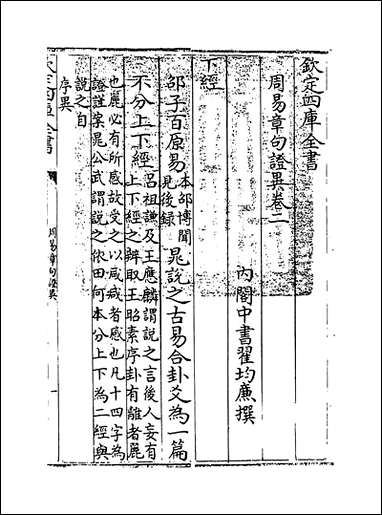 欽定四庫全書
周易章句證異卷二
內閣中書翟均廉撰
下經
邵子百原易本邵博聞見後錄晁說之古易合卦爻為一篇
不分上下經呂祖謙及王應麟謂說之言後人妄有
上下經之辨取王昭素序卦有離者麗
也麗必有所感故受之以咸咸者感也凡十四字為
證註案晁公武謂說之依田何本分上下為二經與
說之自
序異
欽定四庫全書
周易章句證異
一